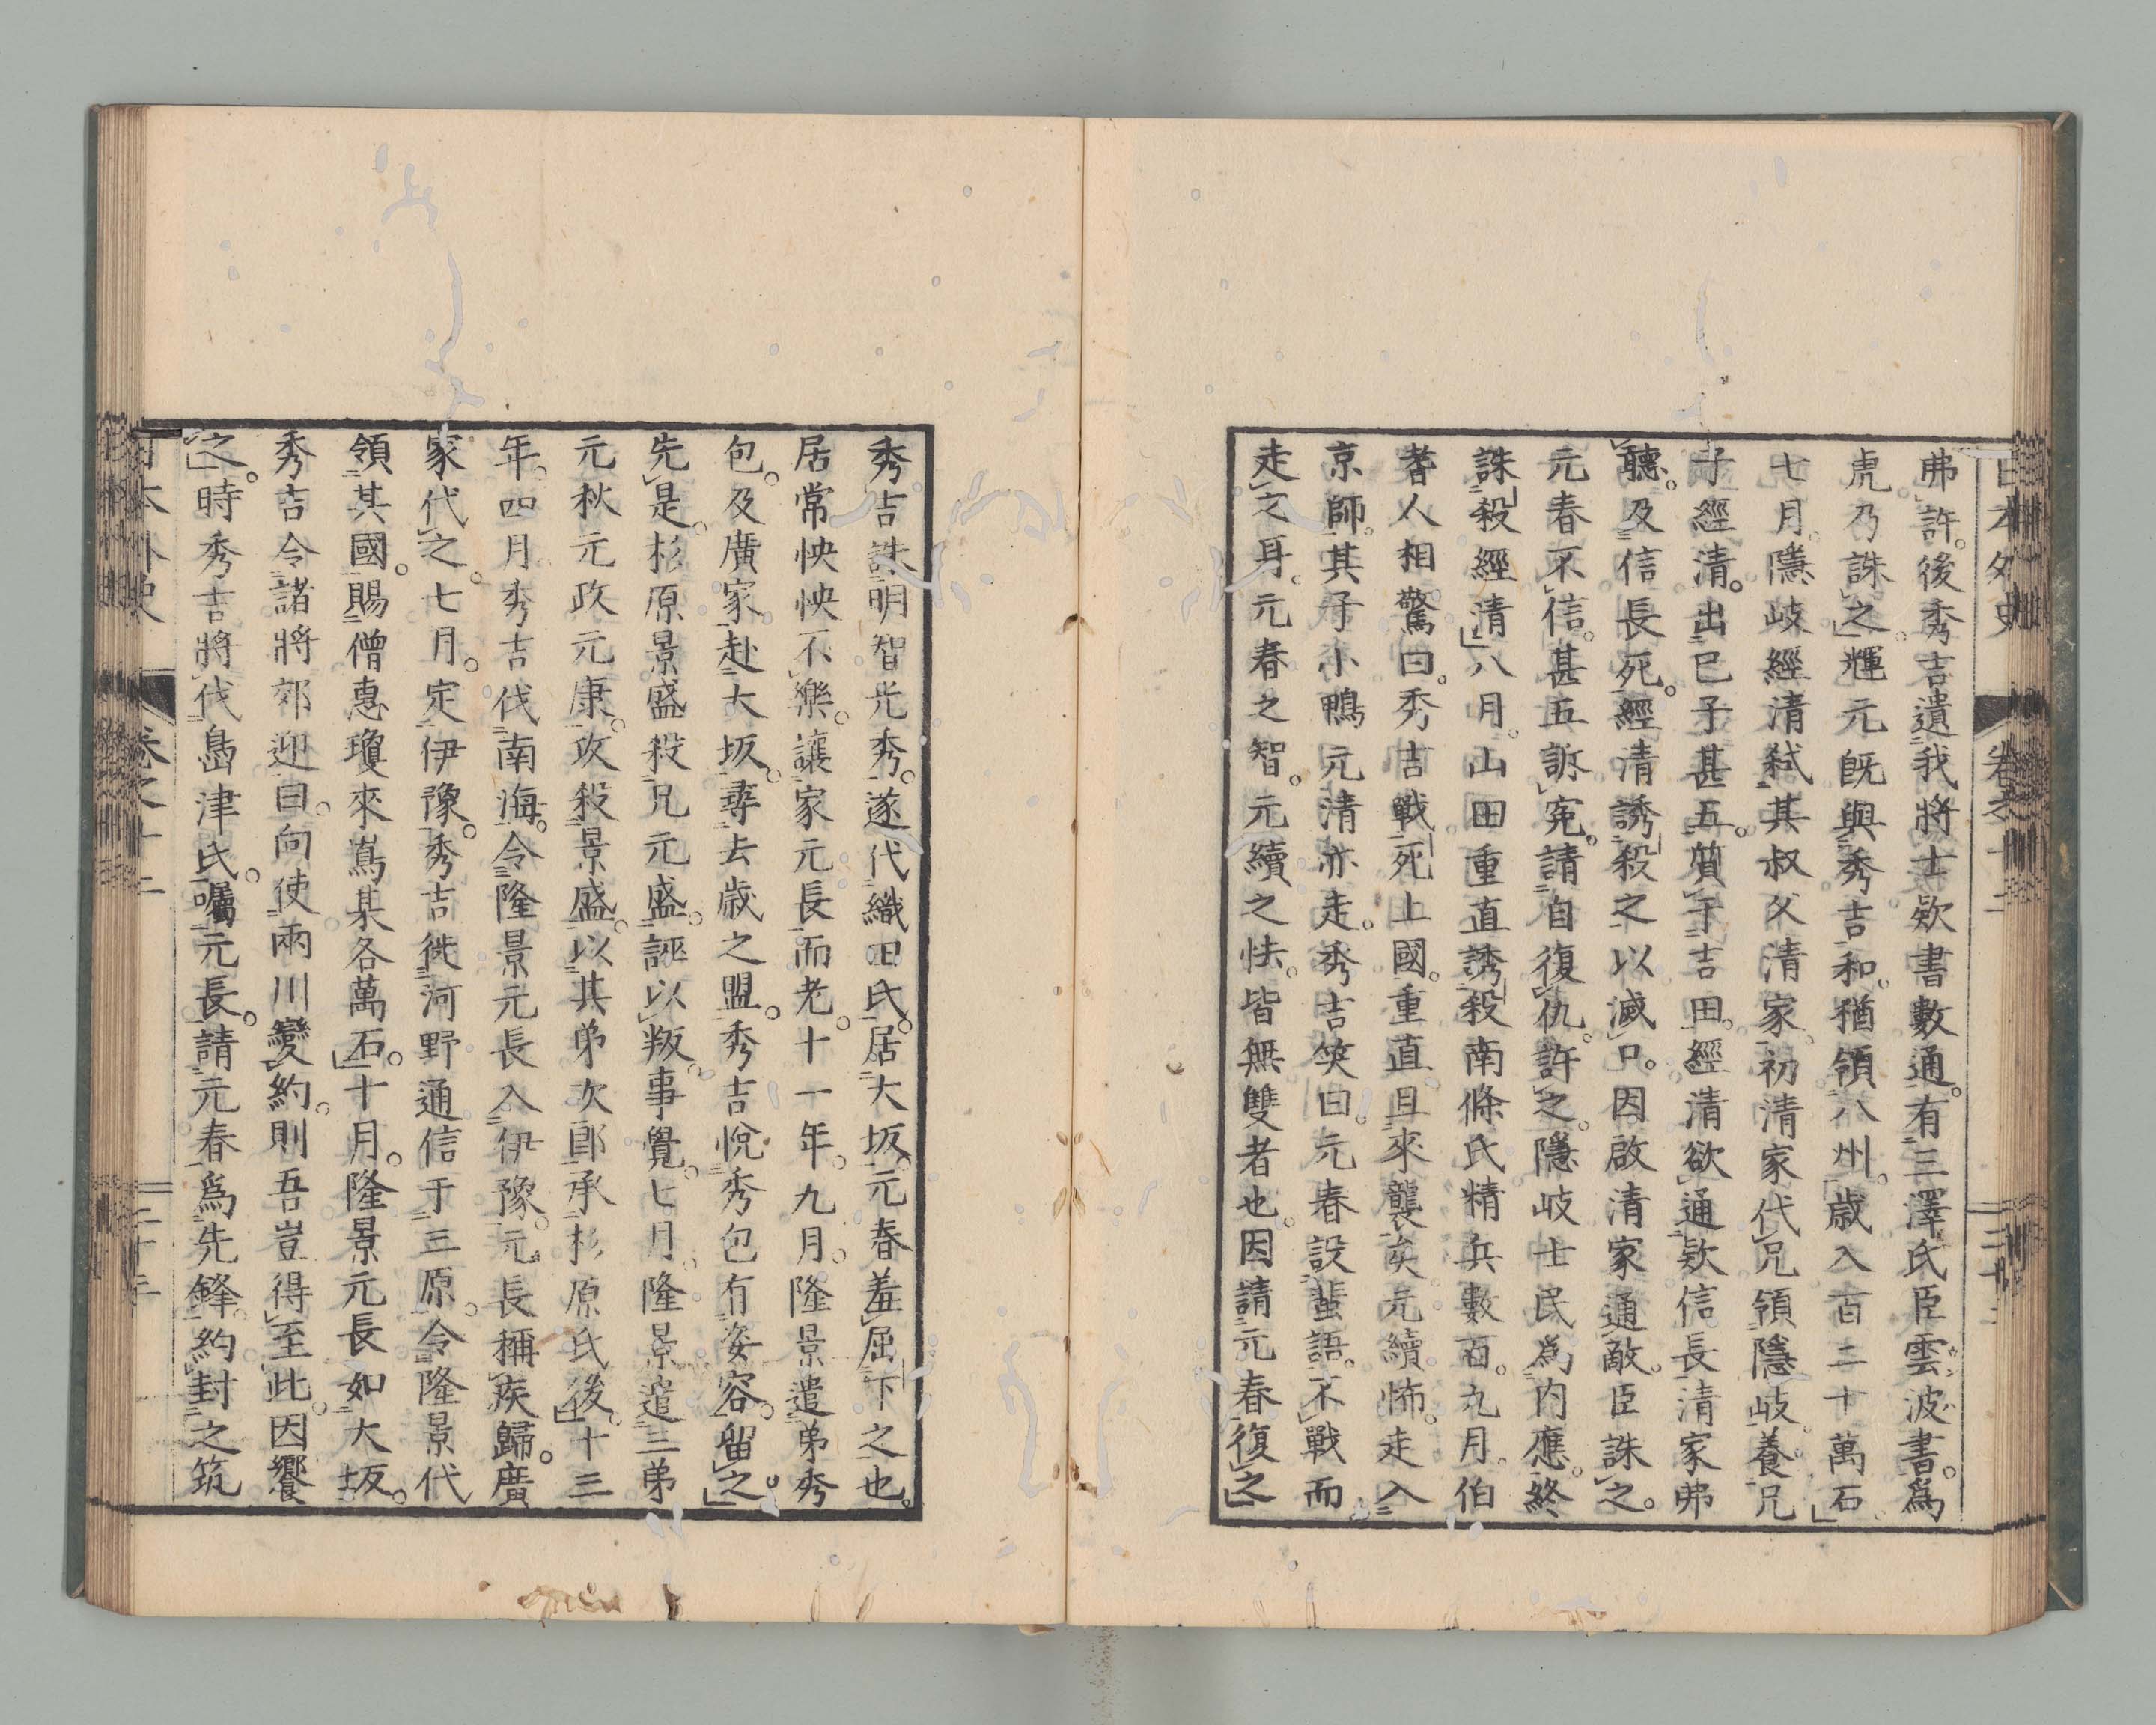 日本外史 卷之十二
弗許。後秀吉遺我將士欵書數通。有三澤氏臣雲波書。爲
虎乃誅之。輝元既與秀吉和。猶領八州。歳入百二十萬石。
七月。隱岐經清弑其叔父清家。初清家代兄領隱岐。養兄
子經清。出己子甚五。質于吉田。經清欲通欵信長。清家弗
聽。及信長死。經清誘殺之以滅口。因啟清家通敵。臣誅之。
元春不信。甚五訴寃。請自復仇。許之。隱岐士民爲内應。終
誅殺經清。八月。山田重直誘殺南條氏精兵數百。九月。伯
耆人相驚曰。秀吉戰死上國。重直且來襲矣。元續怖。走入
京師。其子小鴨元清亦走。秀吉笑曰。元春設蜚語。不戰而
走之耳。元春之智。元續之怯。皆無雙者也。因請元春復之
秀吉誅明智光秀。遂代織田氏。居大坂。元春羞屈下之也。
居常怏怏不樂。讓家元長而老。十一年。九月。隆景遣弟秀
包。及廣家。赴大坂。尋去歳之盟。秀吉悅秀包有姿容。留之。
先是。杉原景盛殺兄元盛。誣以叛。事覺。七月。隆景遣三弟
元秋元政元康。攻殺景盛。以其弟次郎承杉原氏後。十三
年。四月。秀吉伐南海。令隆景元長入伊豫。元長稱疾歸。廣
家代之。七月。定伊豫。秀吉徙河野通信于三原。令隆景代
領其國。賜僧惠瓊來嶌某各萬石。十月。隆景元長如大坂。
秀吉令諸將郊迎曰。向使兩川變約。則吾豈得至此。因饗
之。時秀吉將伐嶌津氏。囑元長。請元春爲先鋒。約封之筑
日本外史 卷之十二 二十三